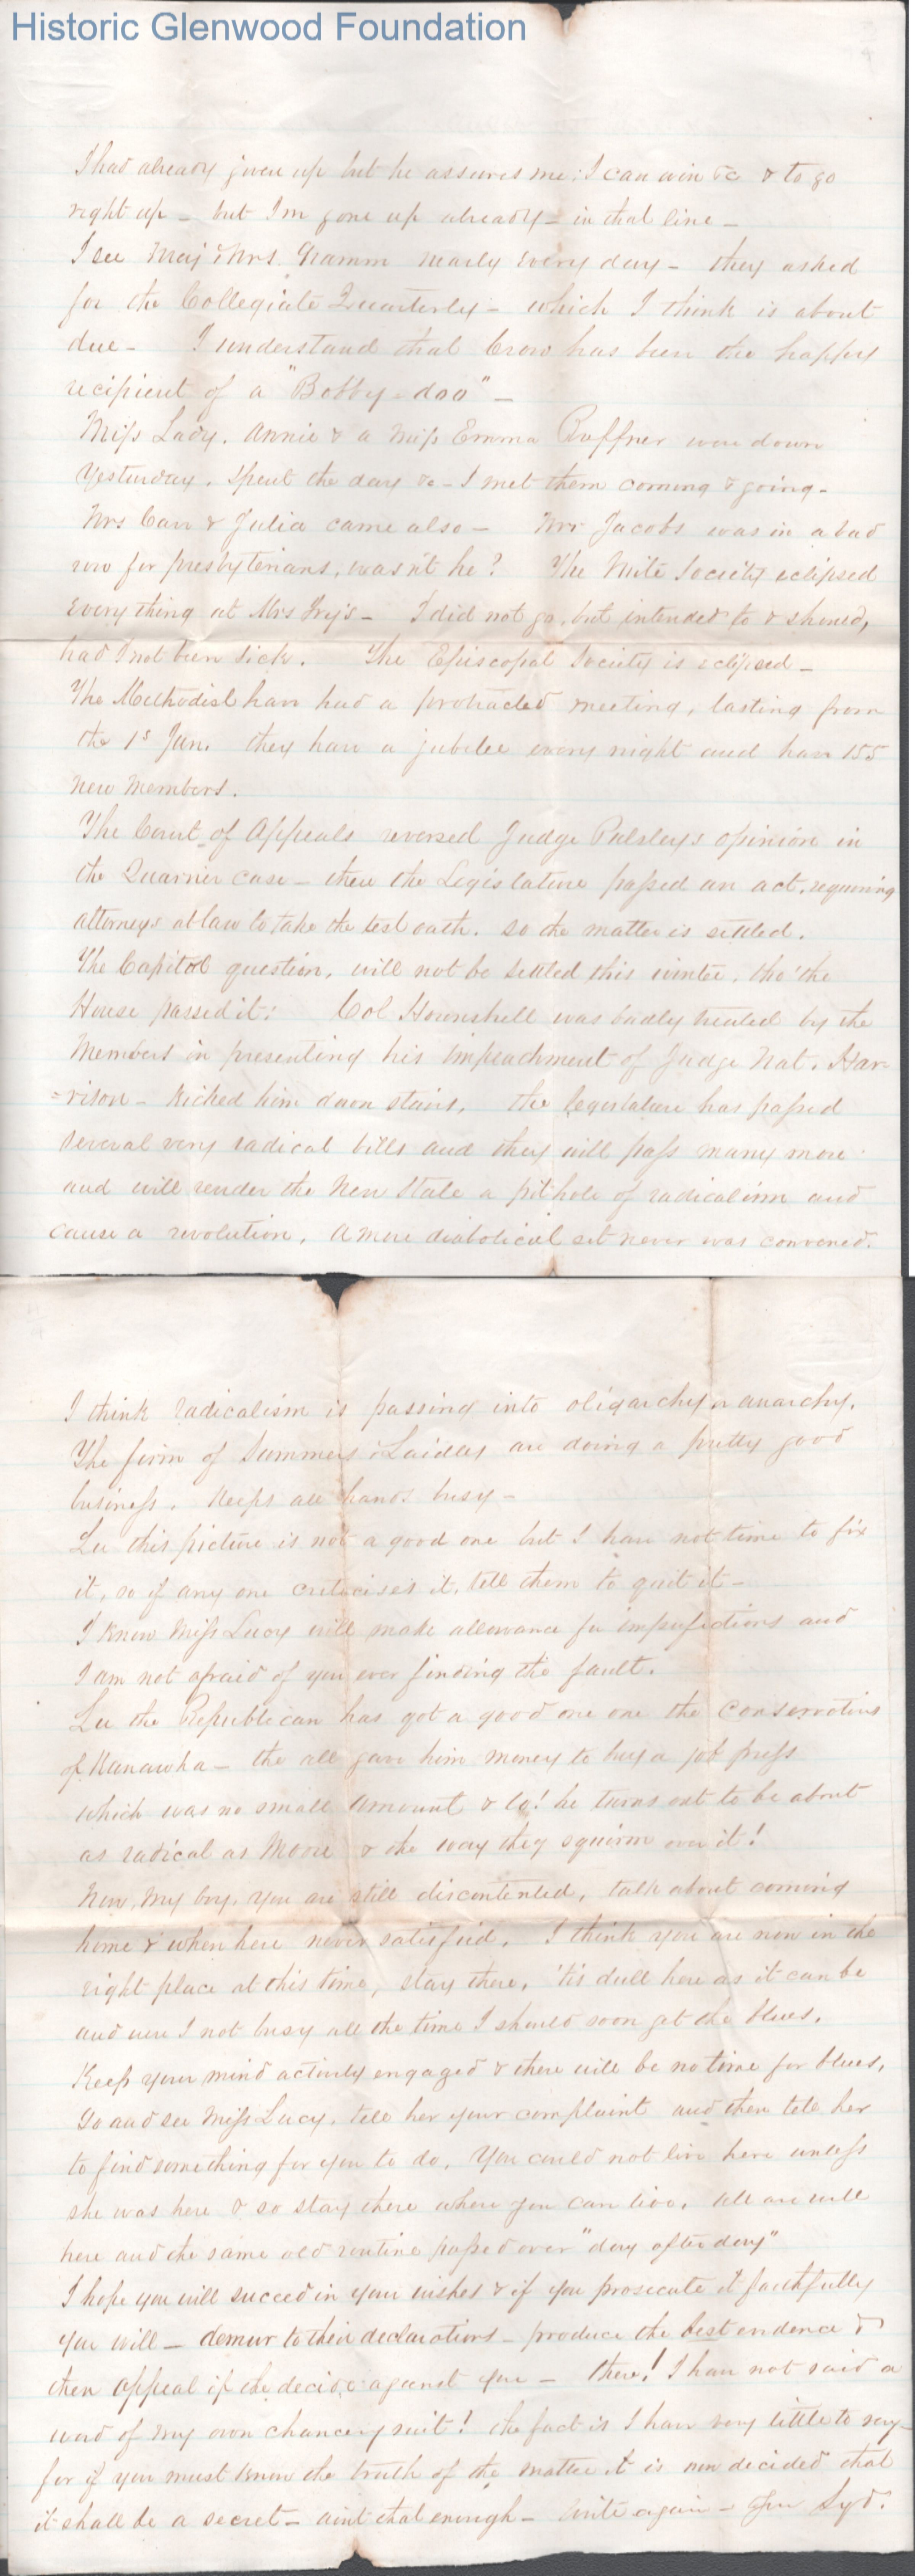 Historic Glenwood Foundation
I had already given up but he assures me I can win &c & to go
right up - but I'm gone up already - in that line -
I see Maj & Mrs. Hamm nearly every day - they asked
for the Collegiate Quarterly - which I think is about
due - I understand that Crow has been the happy
recipient of a "Bobby-doo" -
Miss Lady, Annie & a Miss Emma Ruffner were down
yesterday, spent the day &c - I met them coming & going -
Mrs Carr & Julia came also - Mr Jacobs was in a bad
row for presbyterians, wasn't he? The Mite Society eclipsed
every thing at Mrs Fry's - I did not go, but intended to & should,
had I not been sick. The Episcopal Society is eclipsed -
The Methodist have had a protracted meeting, lasting from
the 1st Jan. they have a jubilee every night and have 155
new members.
The Court of Appeals reversed Judge Polsleys opinion in
the Quarrier case - then the Legislature passed an act, requiring
attorneys at law to take the test oath. so the matter is settled.
The Capitol question, will not be settled this winter, tho' the
House passed it! Col Hounshell was badly treated by the
members in presenting his impeachment of Judge Nat. Har-
=rison - kicked him down stairs. the legislature has passed
several very radical bills and they will pass many more
and will render the New State a pit hole of radicalism and
cause a revolution. A more diabolical set never was convened.
I think radicalism is passing into oligarchy or anarchy.
The firm of Summers & Laidley are doing a pretty good
business. Keeps all hands busy -
Lu this picture is not a good one but I have not time to fix
it, so if any one criticises it, tell them to quit it -
I know Miss Lucy will make allowance for imperfections and
I am not afraid of you ever finding the fault.
Lu the Republican has got a good one one the Conservatives
of Kanawha - the all gave him money to buy a job press
which was no small amount & lo! he turns out to be about
as radical as Moore & the way they squirm over it!
Now, my boy, you are still discontented, talk about coming
home & when here never satisfied. I think you are now in the
right place at this time, stay there. 'tis dull here as it can be
and were I not busy all the time I should soon get the blues.
Keep your mind actively engaged & there will be no time for blues.
Go and see Miss Lucy. tell her your complaint and then tell her
to find something for you to do. You could not live here unless
she was here & so stay there where you can live. All are well
here and the same old routine passed over "day after day"
I hope you will succeed in your wishes & if you prosecute it faithfully
you will - demur to their declarations - produce the best evidence &
then appeal if she decides against you - there! I have not said a
word of my own chancery suit! the fact is I have very little to say -
for if you must know the truth of the matter it is now decided that
it shall be a secret - aint that enough - Write again - Syd.